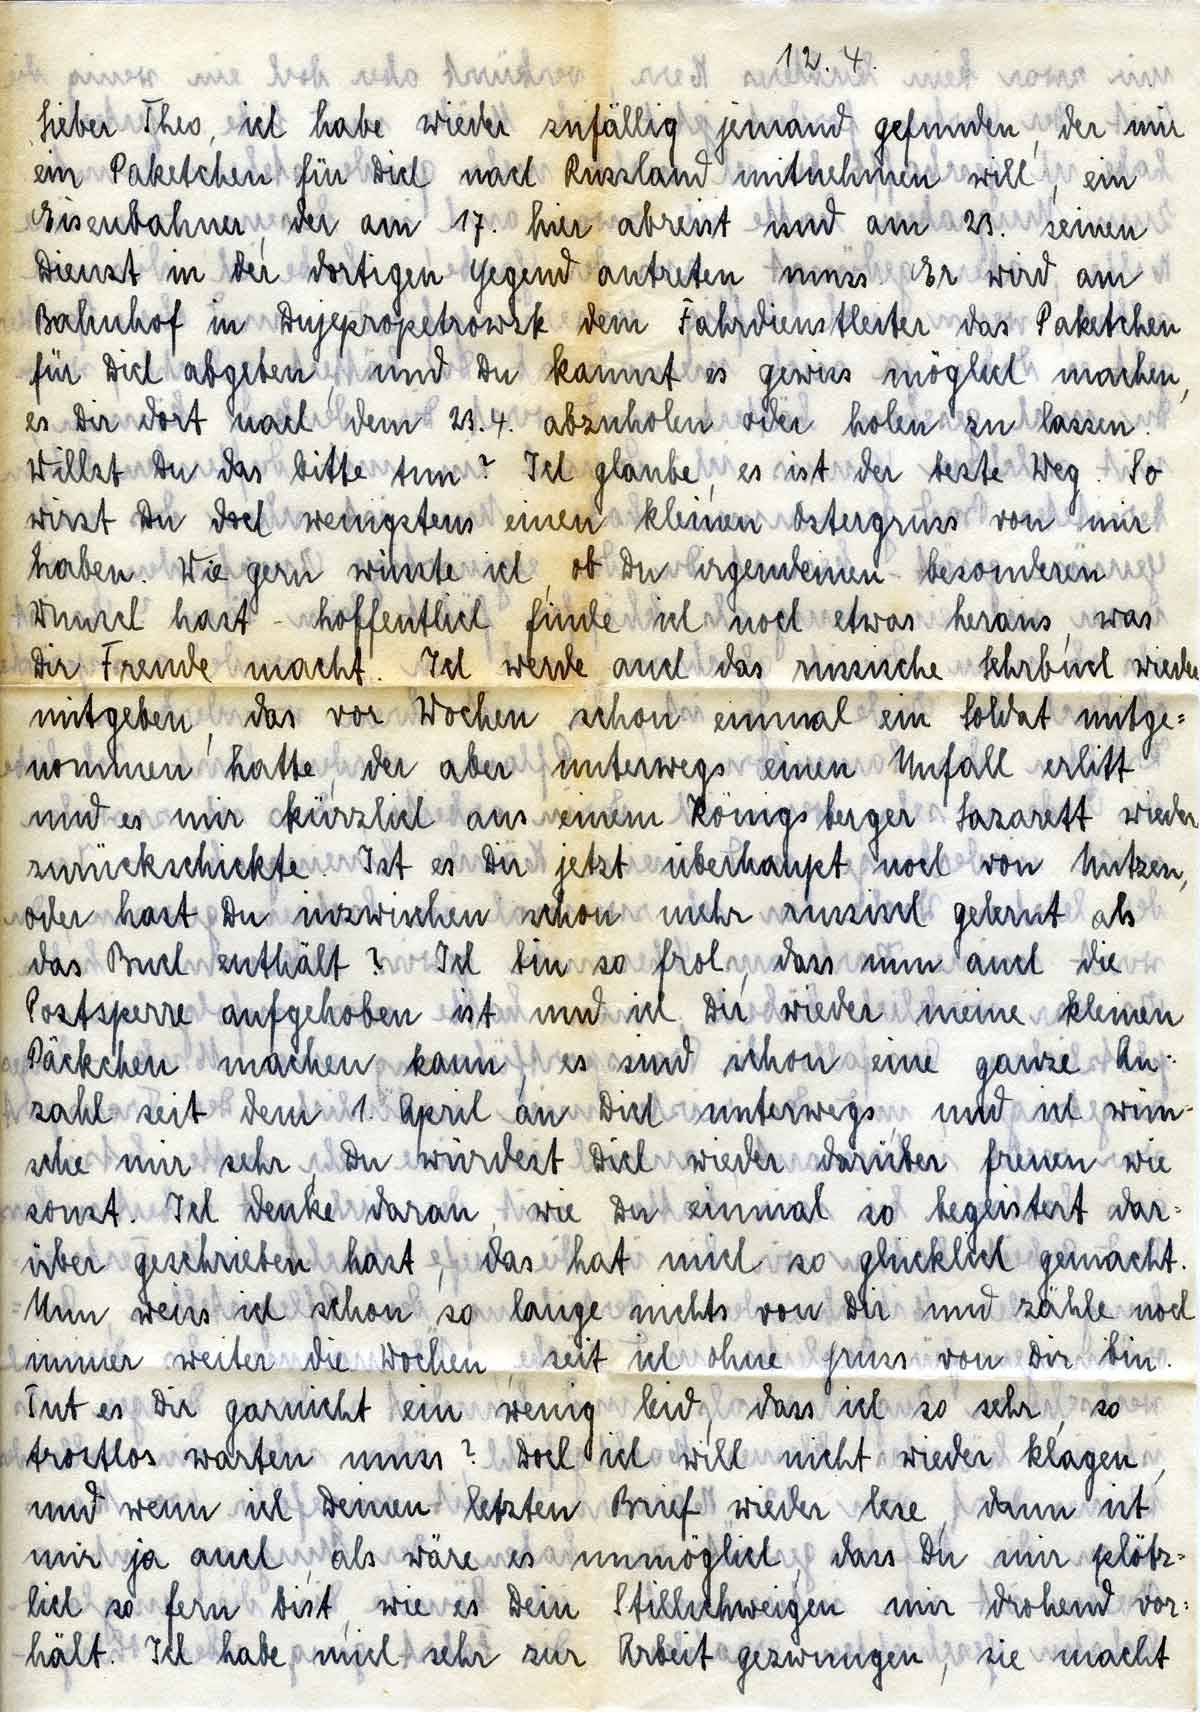 12.4.
Lieber Theo, ich habe wieder zufällig jemand gefunden, der mir
ein Paketchen für Dich nach Russland mitnehmen will, ein
Eisenbahner, der am 17. hier abreist und am 23. seinen
Dienst in der dortigen Gegend antreten muss. Er wird am
Bahnhof in Dnjepropetrowsk dem Fahrdienstleiter das Paketchen
für Dich abgeben, und Du kannst es gewiss möglich machen,
es Dir dort nach dem 23.4. abzuholen oder holen zu lassen.
Willst Du das bitte tun? Ich glaube, es ist der beste Weg. So
wirst Du doch wenigstens einen kleinen Ostergruss von mir
haben. Wie gern wüsste ich, ob Du irgendeinen besonderen
Wunsch hast - hoffentlich finde ich noch etwas heraus, was
Dir Freude macht. Ich werde auch das russische Lehrbuch wieder
mitgeben, das vor Wochen schon einmal ein Soldat mitge=
nommen hatte, der aber unterwegs einen Unfall erlitt
und es mir kürzlich aus einem Königsberger Lazarett wieder
zurückschickte. Ist es Dir jetzt überhaupt noch von Nutzen,
oder hast Du inzwischen schon mehr russisch gelernt als
das Buch enthält? Ich bin so froh, dass nun auch die
Postsperre aufgehoben ist und ich Dir wieder meine kleinen
Päckchen machen kann, es sind schon eine ganze An=
zahl seit dem 1. April an Dich unterwegs, und ich wün=
sche mir sehr, Du würdest Dich wieder darüber freuen wie
sonst. Ich denke daran, wie Du einmal so begeistert dar=
über geschrieben hast, das hat mich so glücklich gemacht.
Nun weiss ich schon so lange nichts von Dir und zähle noch
immer weiter die Wochen, seit ich ohne Gruss von Dir bin.
Tut es Dir garnicht ein wenig leid, dass ich so sehr, so
trostlos warten muss? Doch ich will nicht wieder klagen,
und wenn ich Deinen letzten Brief wieder lese, dann ist
mir ja auch, als wäre es unmöglich, dass Du mir plötz=
lich so fern bist, wie es Dein Stillschweigen mir drohend vor=
hält. Ich habe mich sehr zur Arbeit gezwungen, sie macht